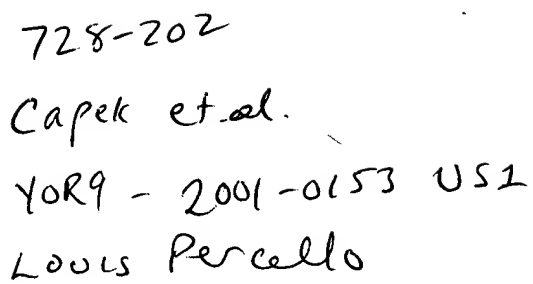 728-202
Capek et.al.
YOR9 - 2001-0153 US1
Louis Percello